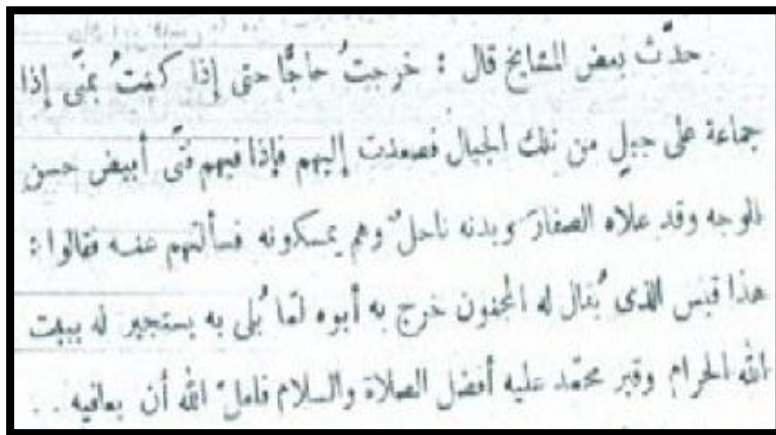 حدَّث بعض المشايخ قال : خرجتُ حاجًّا حتى إذا كنتُ بمنًى إذا
جماعة على جبلٍ من تلك الجبال فصعدت إليهم فإذا فيهم فتًى أبيض حسن
الوجه وقد علاه الصفارُ وبدنه ناحلٌ وهم يمسكونه فسألتهم عنه فقالوا :
هذا قيس الذى يُقال له المجنون خرج به أبوه لمّا بُلى به يستجير له ببيت
الله الحرام وقبر محمّد عليه أفضل الصلاة والسلام فلعلّ الله أن يعافيه . .